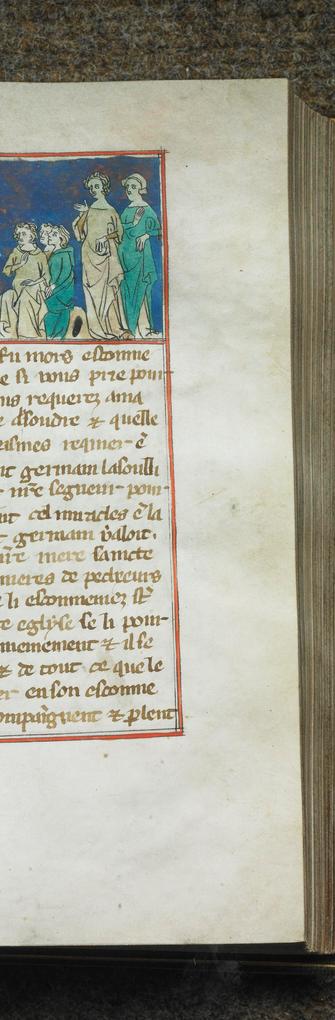 fu mors escomme
e si vous prie pour
us requerez ama
e assoudre ⁊ quelle
asmes requier ē
nt germain lasoulli
nr̄e segneur pour
nt cel miracles ē la
germain
nr̄e mere saincte
mieres de pecheurs
e li escommeniez
te eglyse se li pour
mement ⁊ il se
⁊ de tout ce que le
er en son escomme
ompaignent ⁊ plent